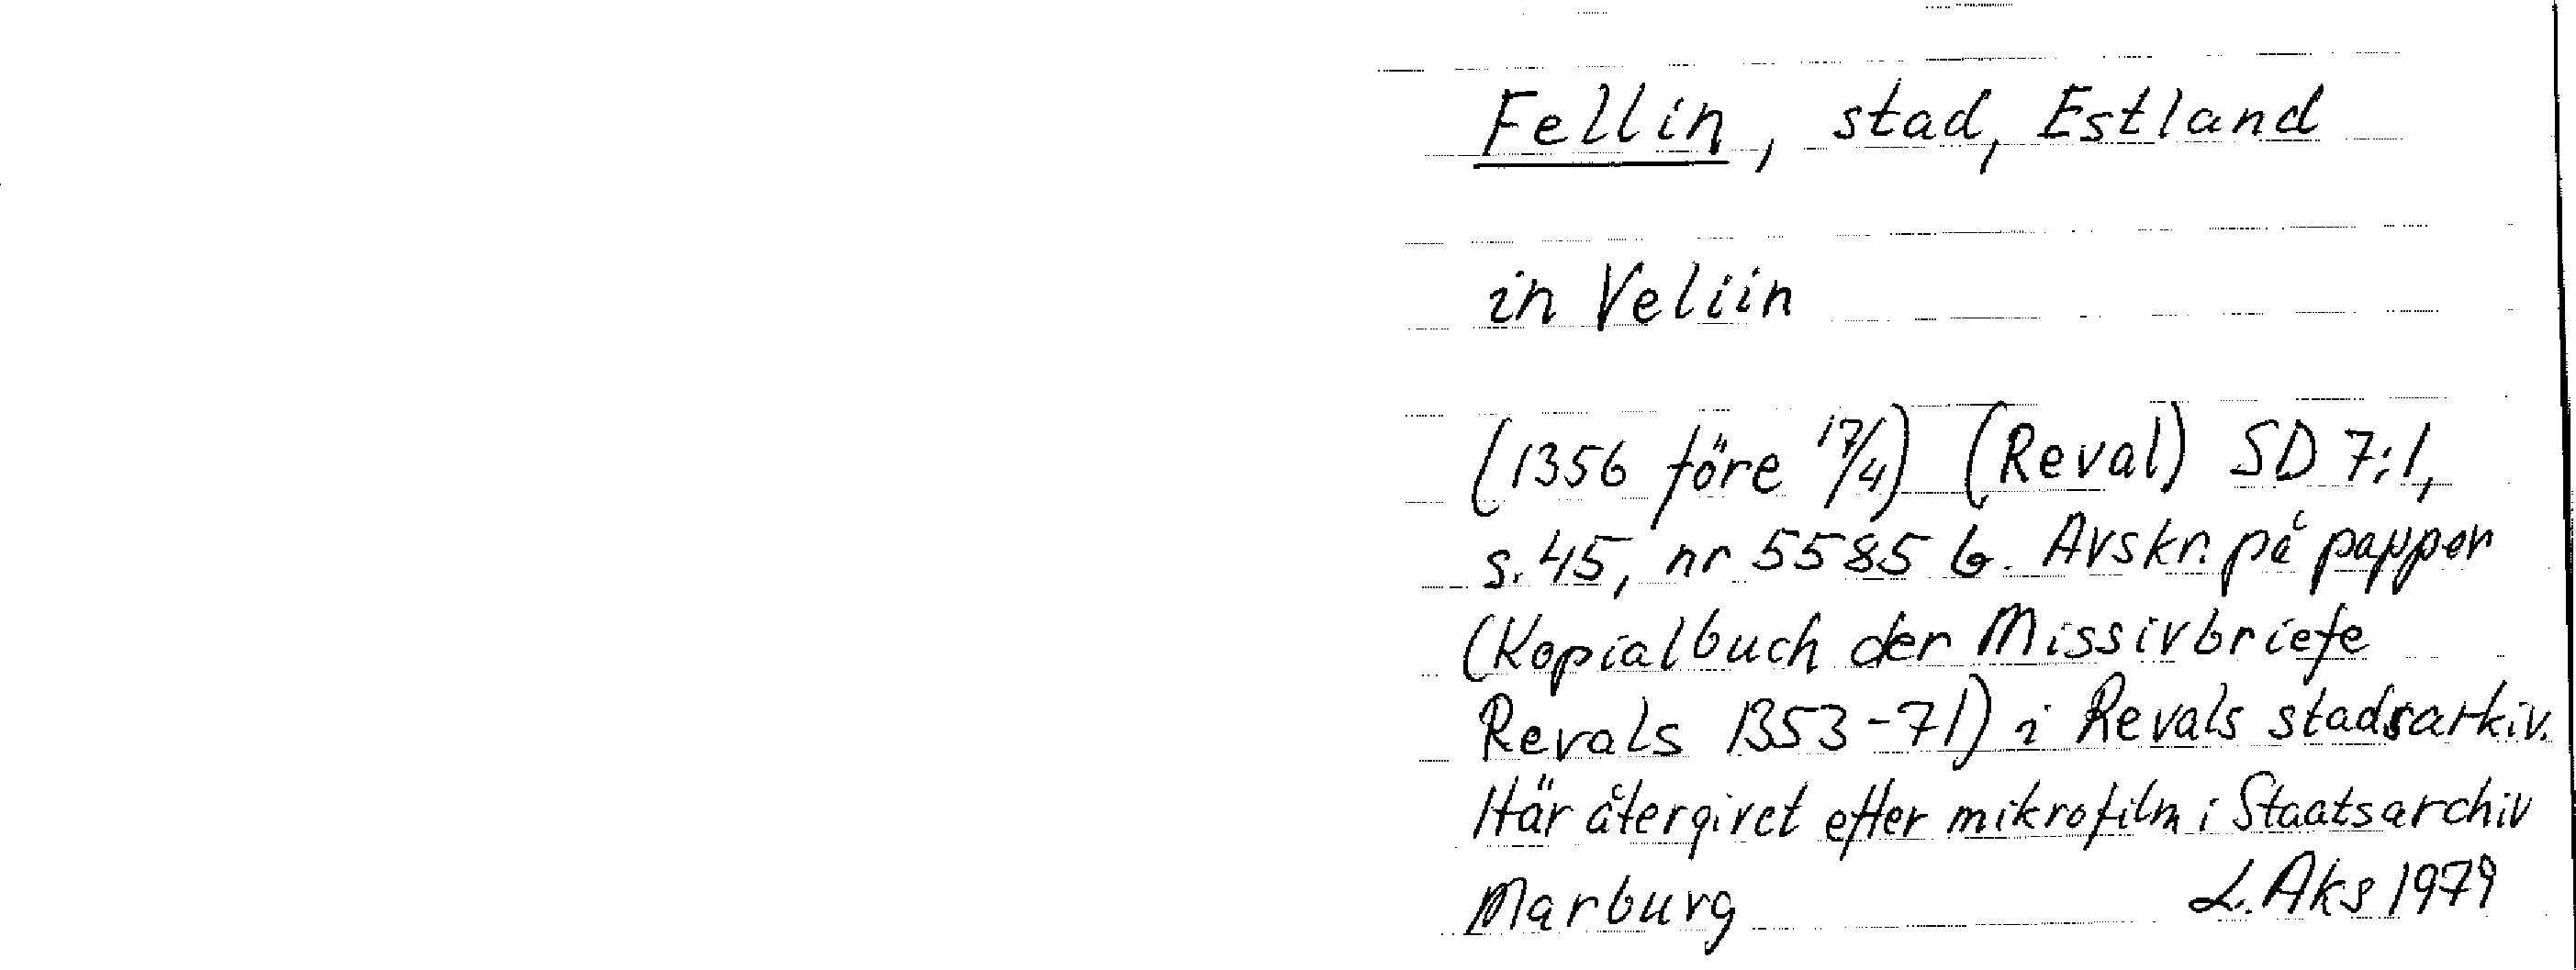 Fellin, stad, Estland
in Veliin
(1356 före 17/4) (Reval) SD 7:1,
s. 45, nr 5585 b. Avskr. på papper
(Kopialbuch der Missivbriefe
Revals 1353-71) i Revals stadsarkiv.
Här återgivet efter mikrofilm i Staatsarchiv
Marburg L. Aks 1979